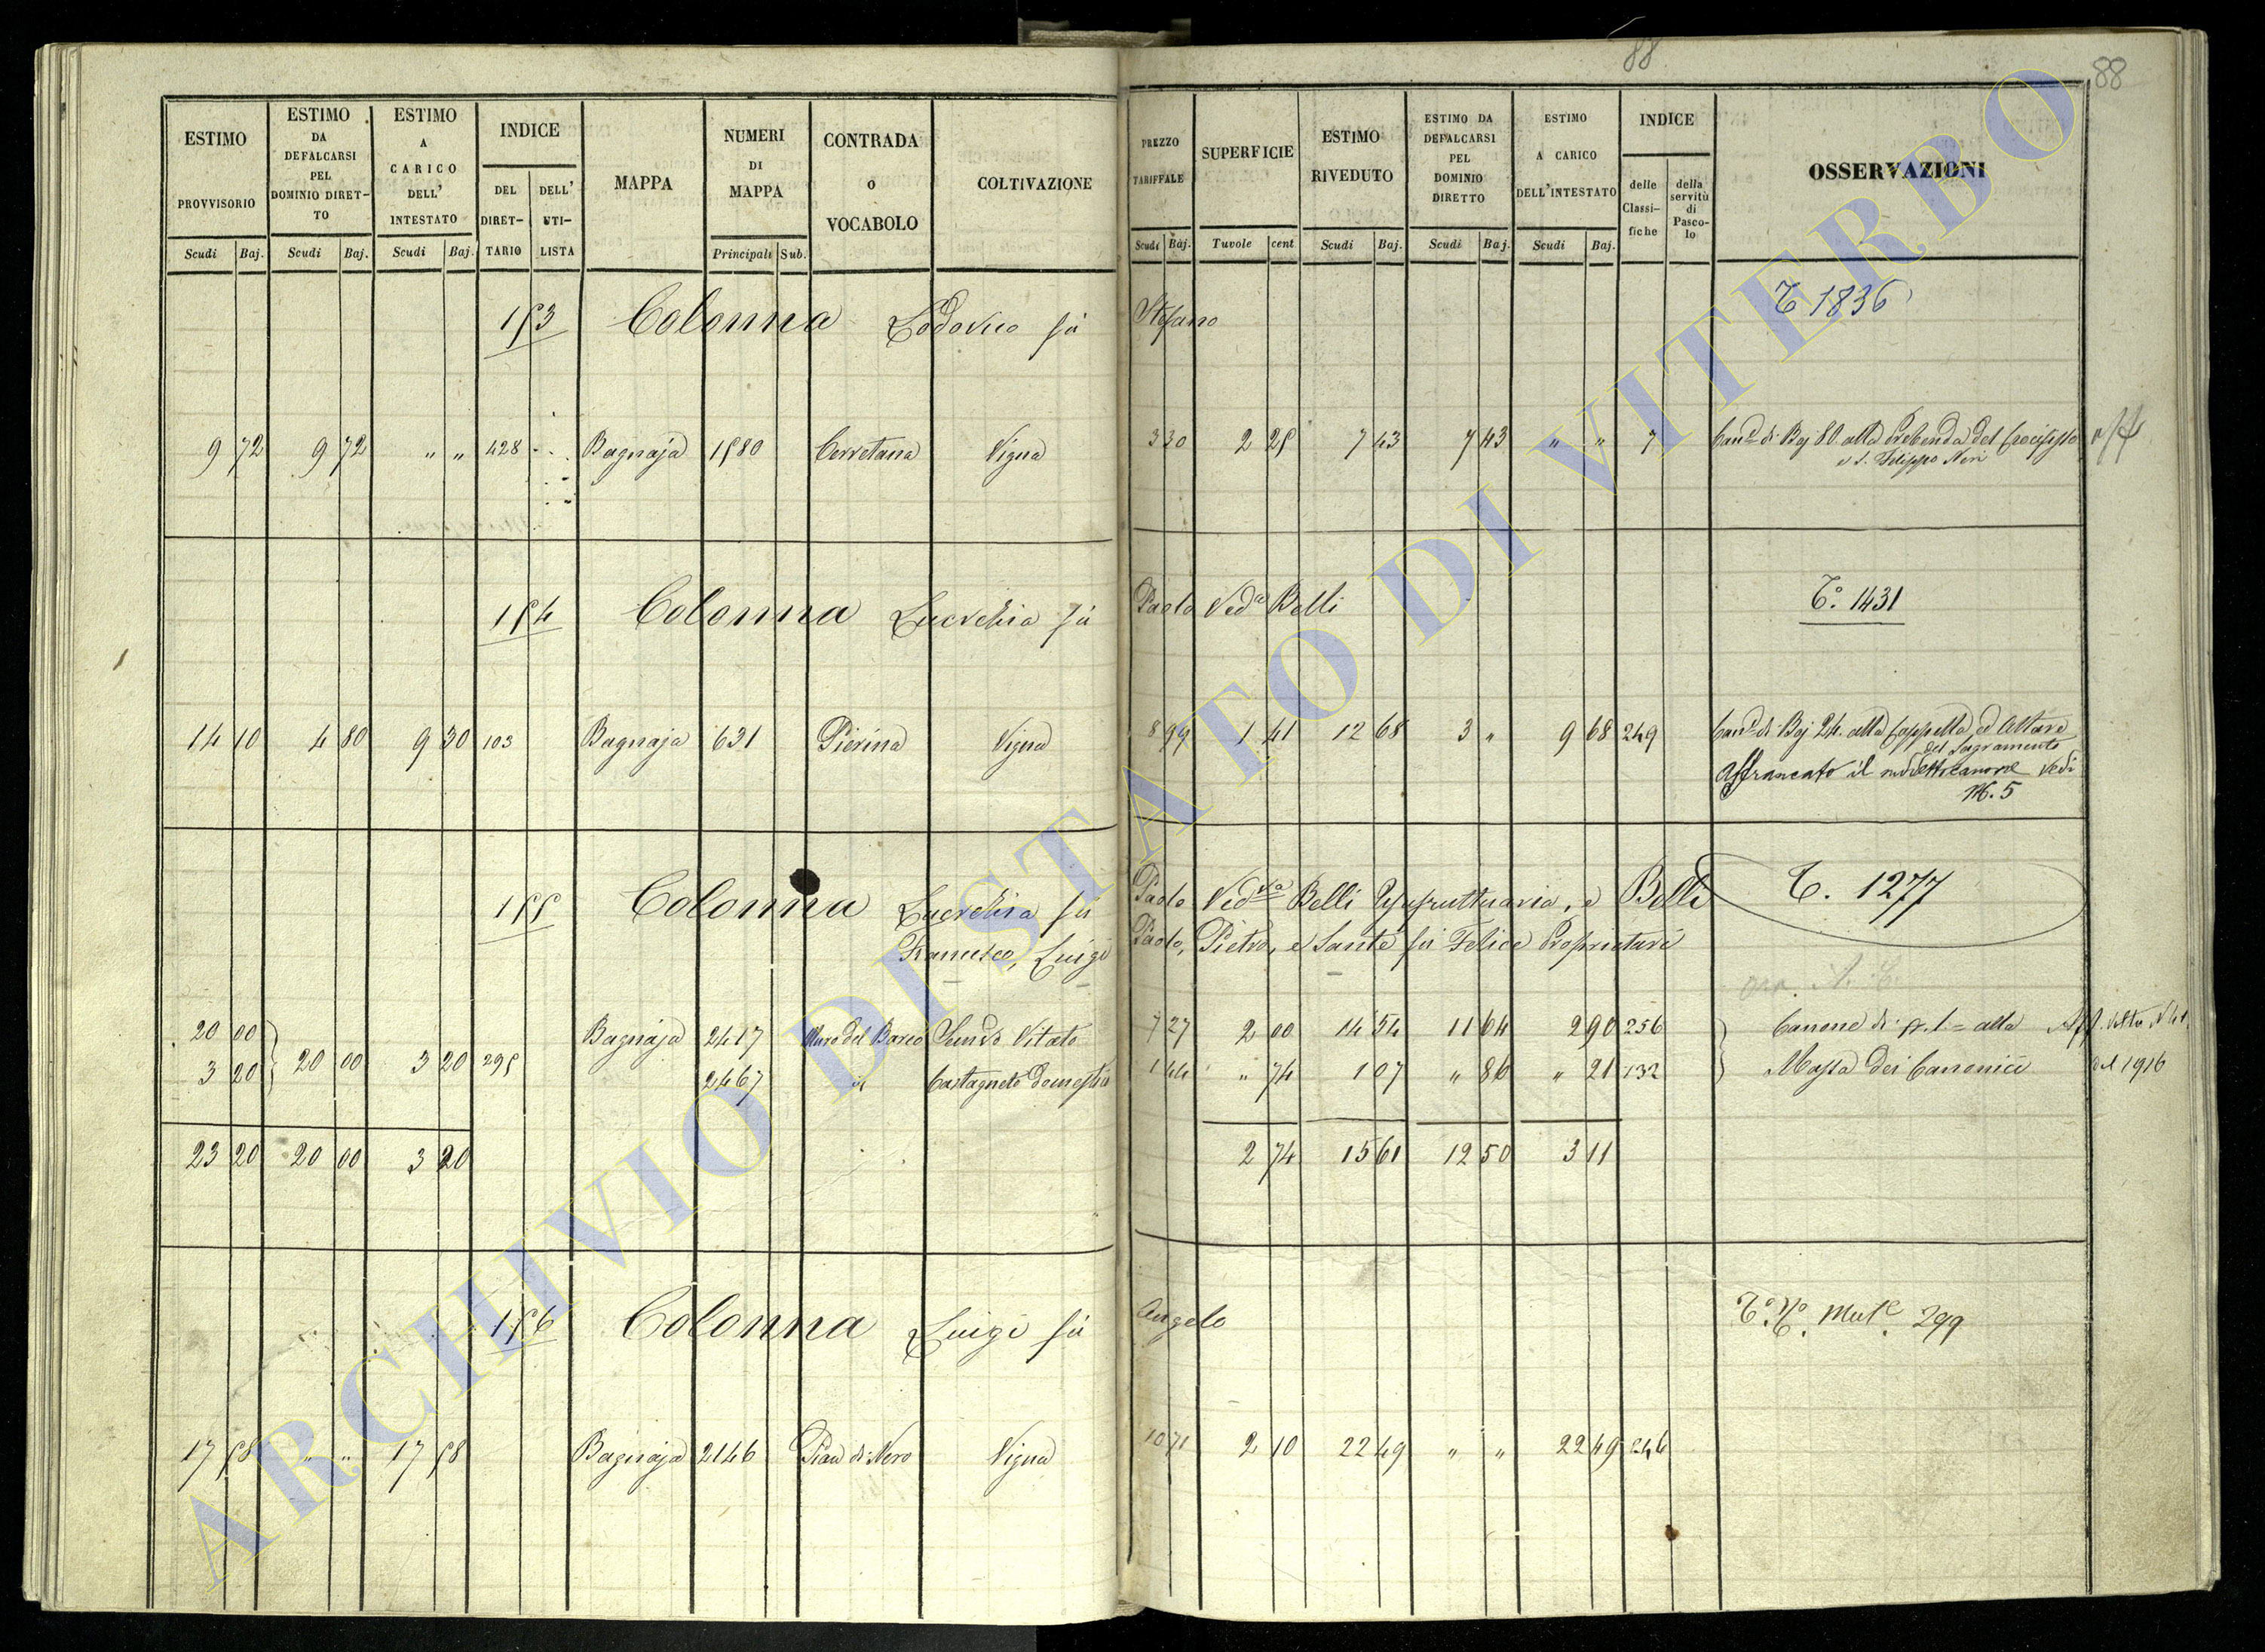 88
88
ESTIMO PROVVISORIO
ESTIMO DA DEFALCARSI PEL DOMINIO DIRET-TO
ESTIMO A CARICO DELL' INTESTATO
INDICE
DEL DIRET-TARIO
DELL' UTI-LISTA
MAPPA
NUMERI DI MAPPA
CONTRADA O VOCABOLO
COLTIVAZIONE
PREZZO TARIFFALE
SUPERFICIE
ESTIMO RIVEDUTO
ESTIMO DA DEFALCARSI PEL DOMINIO DIRETTO
ESTIMO A CARICO DELL'INTESTATO
INDICE
delle Classi-fiche
della servitù di Pasco-lo
OSSERVAZIONI
Scudi Baj. Scudi Baj. Scudi Baj. Principali Sub. Scudi Baj. Tavole cent Scudi Baj. Scudi Baj. Scudi Baj.
153 Colonna Lodovico fù Stefano T 1836
9 72 9 72 " " 428 Bagnaja 1580 Cerretana Vigna 3 30 2 25 7 43 7 43 " " 7 Can.e di Baj 80. alla Prebenda del Crocifisso
e S. Filippo Neri
154 Colonna Lucrezia fù Paolo Ved.a Belli T.o 1431
14 10 4 80 9 30 103 Bagnaja 631 Pierina Vigna 8 99 1 41 12 68 3 " 9 68 249 Can.e di Baj 24. alla Cappella, ed Altare
del Sagramento
Affrancato il sudetto canone Vedi
M. 5
155 Colonna Lucrezia fù Paolo Ved.va Belli Usufruttuaria, e Belli T. 1277
Francesco, Luigi Paolo, Pietro, e Sante fù Felice Proprietari
20 00 Bagnaja 2417 Muro del Barco Sem.o Vitato 7 27 2 00 14 54 11 64 2 90 256 Canone di alla
3 20 20 00 3 20 295 2467 id Castagneto domestico 1 44 " 74 1 07 " 86 " 21 132 Massa dei Canonici del 1916
23 20 20 00 3 20 2 74 15 61 12 50 3 11
156 Colonna Luigi fù Angelo T.o N.o Mut.e 299
17 58 " " 17 58 Bagnaja 2146 Pian di Nero Vigna 10 71 2 10 22 49 " " 22 49 246
ARCHIVIO DI STATO DI VITERBO